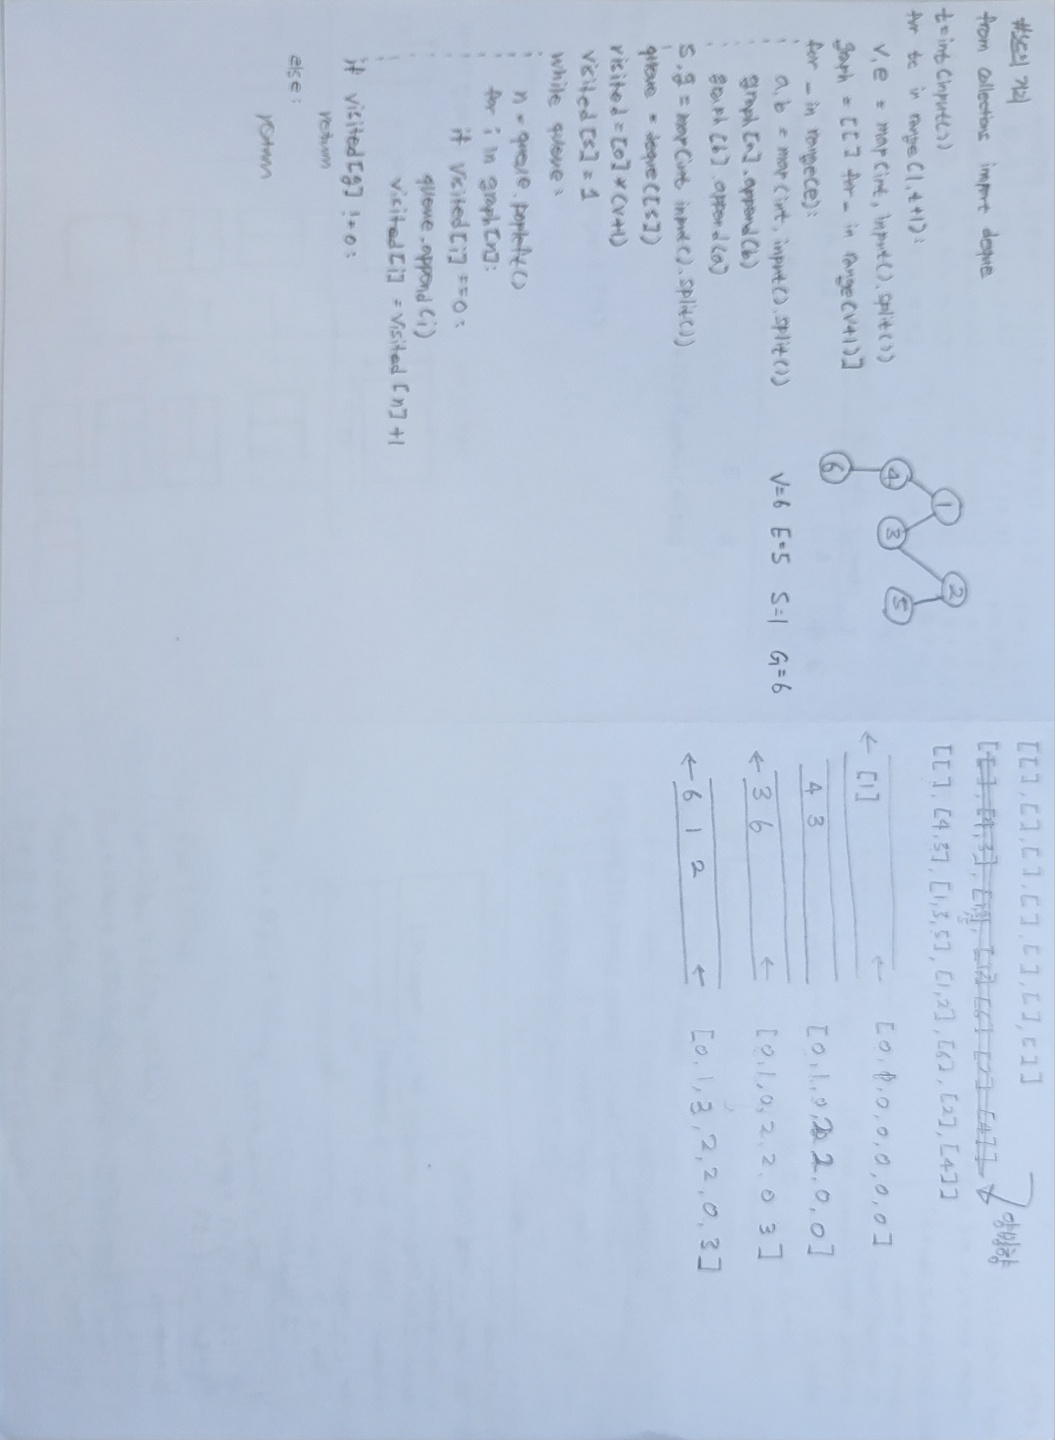 #노드의 거리
from collections import deque
t=int(input())
for tc in range(1,t+1):
v,e = map(int, input().split())
graph = [[] for _ in range(v+1)]
for _ in range(e):
a,b = map(int, input().split())
graph[a].append(b)
graph[b].append(a)
s,g = map(int input().split())
queue = deque([s])
visited=[0]*(v+1)
visited[s]=1
while queue:
n = queue.popleft()
for i in graph[n]:
if visited[i]==0:
queue.append(i)
visited[i] = visited[n]+1
if visited[g] !=0:
return
else:
return
1 2
4 3 5
6
V=6 E=5 S=1 G=6
[[],[],[],[],[],[],[]]
양방향
[[], [4,3],
[[], [4,3], [1,3,5], [1,2], [6], [2], [4]]
← [1] ← [0,1,0,0,0,0,0]
4 3 [0,1,0,2,2,0,0]
← 3 6 ← [0,1,0,2,2,0 3]
← 6 1 2 ← [0,1,3,2,2,0,3]